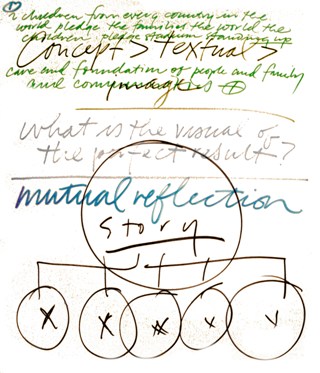 1
children from every country in the
world pledge the families the world the
children please stadium standing up
Concept > Textual >
care and foundation of people and family
and
What is the visual of
the perfect result?
mutual reflection
story
X X X X V